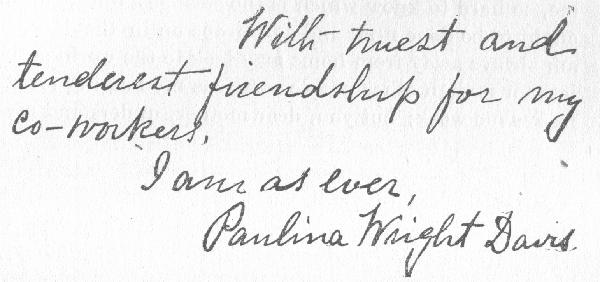 With truest and
tenderest friendship for my
co-workers,
I am as ever,
Paulina Wright Davis.